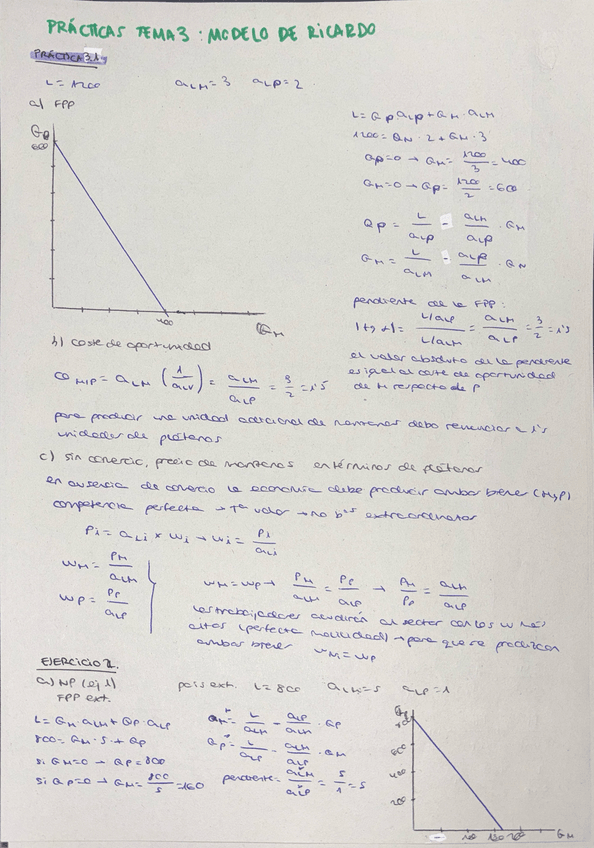 PRÁCTICAS TEMA 3: MODELO DE RICARDO
PRÁCTICA 3.1
L=1200 aLM=3 aLP=2
a) FPP
QP
600
400
QM
L=QP aLP+QM·aLM
1200=QM·2+QM·3
QP=0→QM=1200/3=400
QM=0→QP=1200/2=600
QP = L/aLP - aLM/aLP · QM
QM = L/aLM - aLP/aLM · QN
pendiente de la FPP:
= L/aLP / L/aLM = aLM/aLP = 3/2 = 1'5
el valor absoluto de la pendiente
es igual al coste de oportunidad
de M respecto de P
b) coste de oportunidad
CO M/P = aLM (1/aLV) = aLM/aLP = 3/2 = 1'5
para producir una unidad adicional de manzanas debo renunciar a 1'5
unidades de plátanos
c) sin comercio, precio de manzanas en términos de plátanos
en ausencia de comercio la economía debe producir ambos bienes (M,P)
competencia perfecta → Tª valor → no bºs extraordinarios
Pi = aLi × wi → wi = Pi/aLi
wM = PM/aLM
wP = PP/aLP
wM=wP → PM/aLM = PP/aLP → PM/PP = aLM/aLP
los trabajadores acudirán al sector con los w más
altos (perfecta movilidad) → para que se produzcan
ambos bienes wM=wP
EJERCICIO 2.
a) NP (ej 1) país ext. L=800 aLM=5 aLP=1
FPP ext.
L=QM·aLM+QP·aLP
800=QM·5+QP
si QM=0 → QP=800
si QP=0 → QM=800/5=160
QM*= L/aLM - aLP/aLM · QP
QP*= L/aLP - aLM/aLP · QM
pendiente= aLM*/aLP* = 5/1 = 5
QP
600
400
200
QM